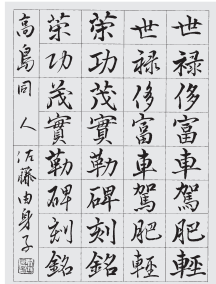 世禄侈富車駕肥輕
世禄侈富車駕肥輕
策功茂實勒碑刻銘
策功茂實勒碑刻銘
高島同人 佐藤由身子